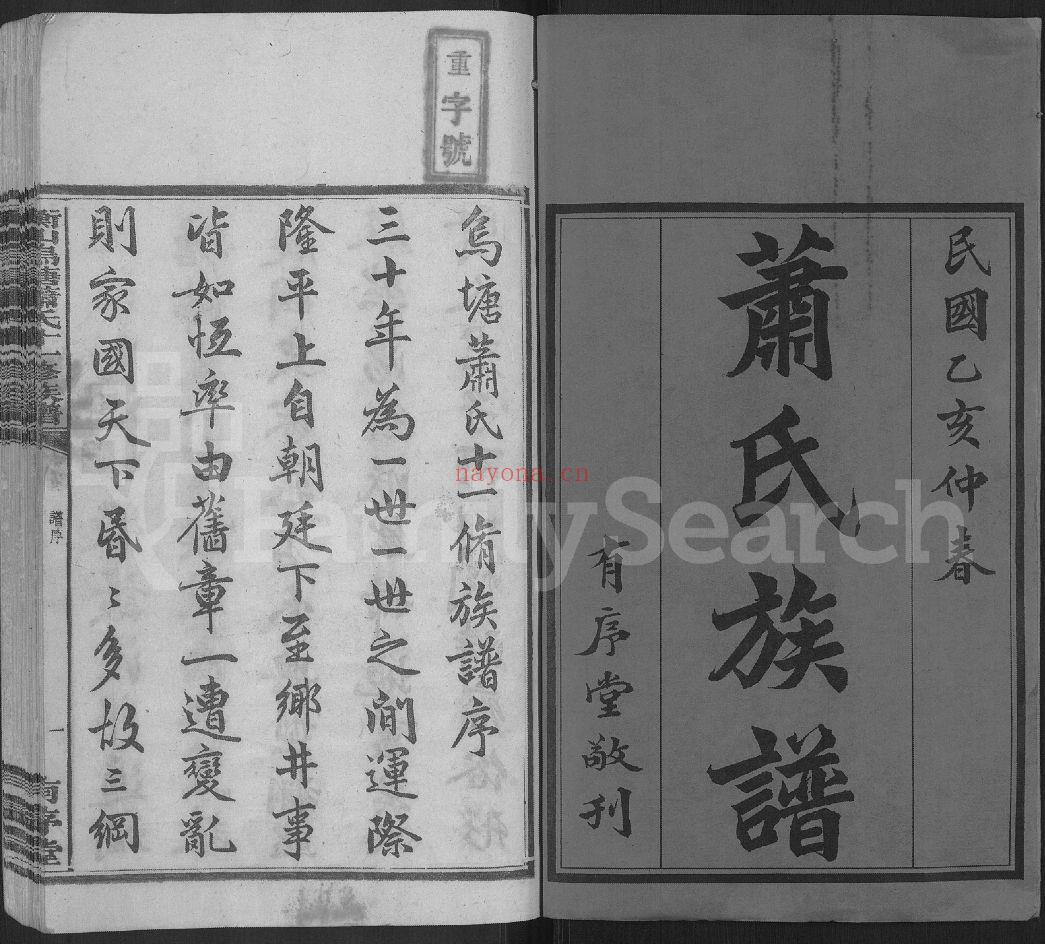 民國乙亥仲春
蕭氏族譜
有序堂敬刊
重字號
烏塘蕭氏十一脩族譜序
三十年為一世一世之間運際
隆平上自朝廷下至鄉井事
皆如恆率由舊章一遭變亂
則家國天下昏〻多故三綱
衡山烏塘蕭氏十一修族譜
譜序
一
有序堂
nayona.cn
FamilySearch